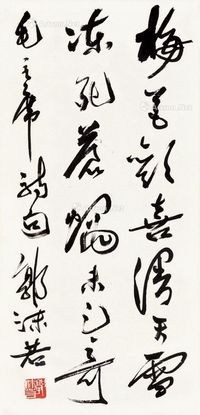 梅花歡喜漫天雪
凍死蒼蠅未足奇
毛主席詩句 郭沫若